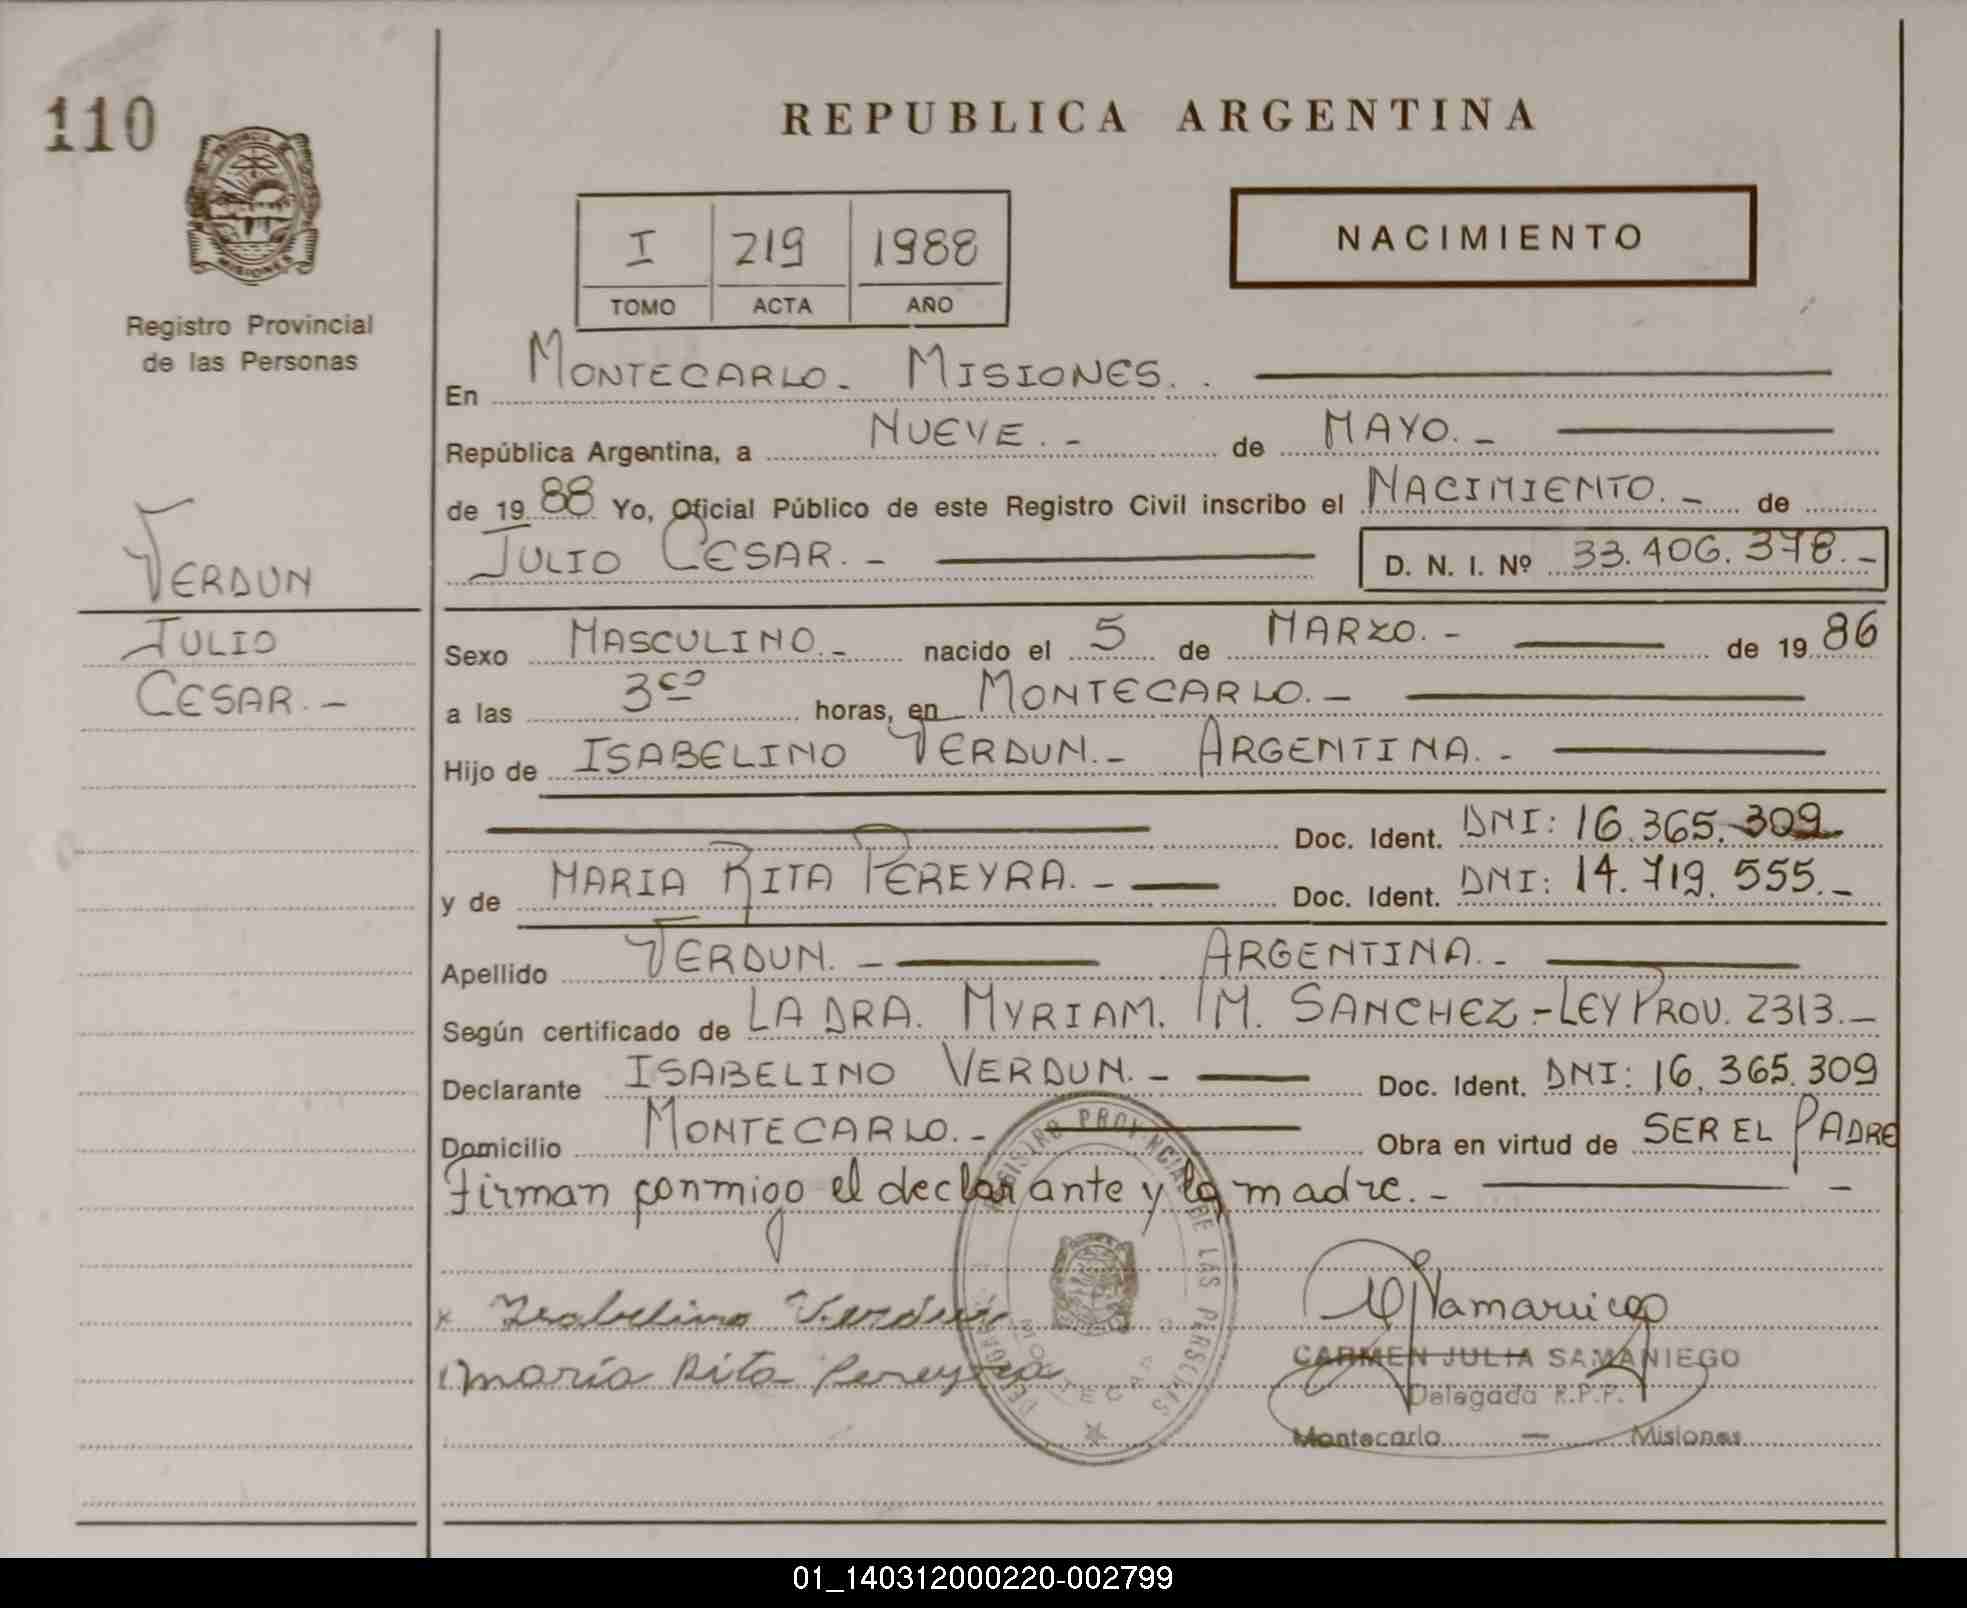 110
REPUBLICA ARGENTINA
PROVINCIA DE
MISIONES
Registro Provincial
de las Personas
I 219 1988
TOMO ACTA AÑO
NACIMIENTO
En MONTECARLO.- MISIONES..
República Argentina, a NUEVE.- de MAYO.-
de 1988 Yo, Oficial Público de este Registro Civil inscribo el NACIMIENTO.- de
JULIO CESAR.- D. N. I. Nº 33.406.378.-
VERDUN
JULIO
CESAR.-
Sexo MASCULINO.- nacido el 5 de MARZO.- de 1986
a las 3 horas, en MONTECARLO.-
Hijo de ISABELINO VERDUN.- ARGENTINA.-
Doc. Ident. DNI: 16.365.309
y de MARIA RITA PEREYRA.- Doc. Ident. DNI: 14.719.555.-
Apellido VERDUN.- ARGENTINA.-
Según certificado de LA DRA. MYRIAM. M. SANCHEZ-LEY PROV. 2313.-
Declarante ISABELINO VERDUN.- Doc. Ident. DNI: 16.365.309
Domicilio MONTECARLO.- Obra en virtud de SER EL PADRE
Firman conmigo el declarante y la madre.-
REGISTRO PROVINCIAL DE LAS PERSONAS
x Isabelino Verdun
María Rita Pereyra
CARMEN JULIA SAMANIEGO
Delegada R.P.P.
Montecarlo - Misiones
01_140312000220-002799